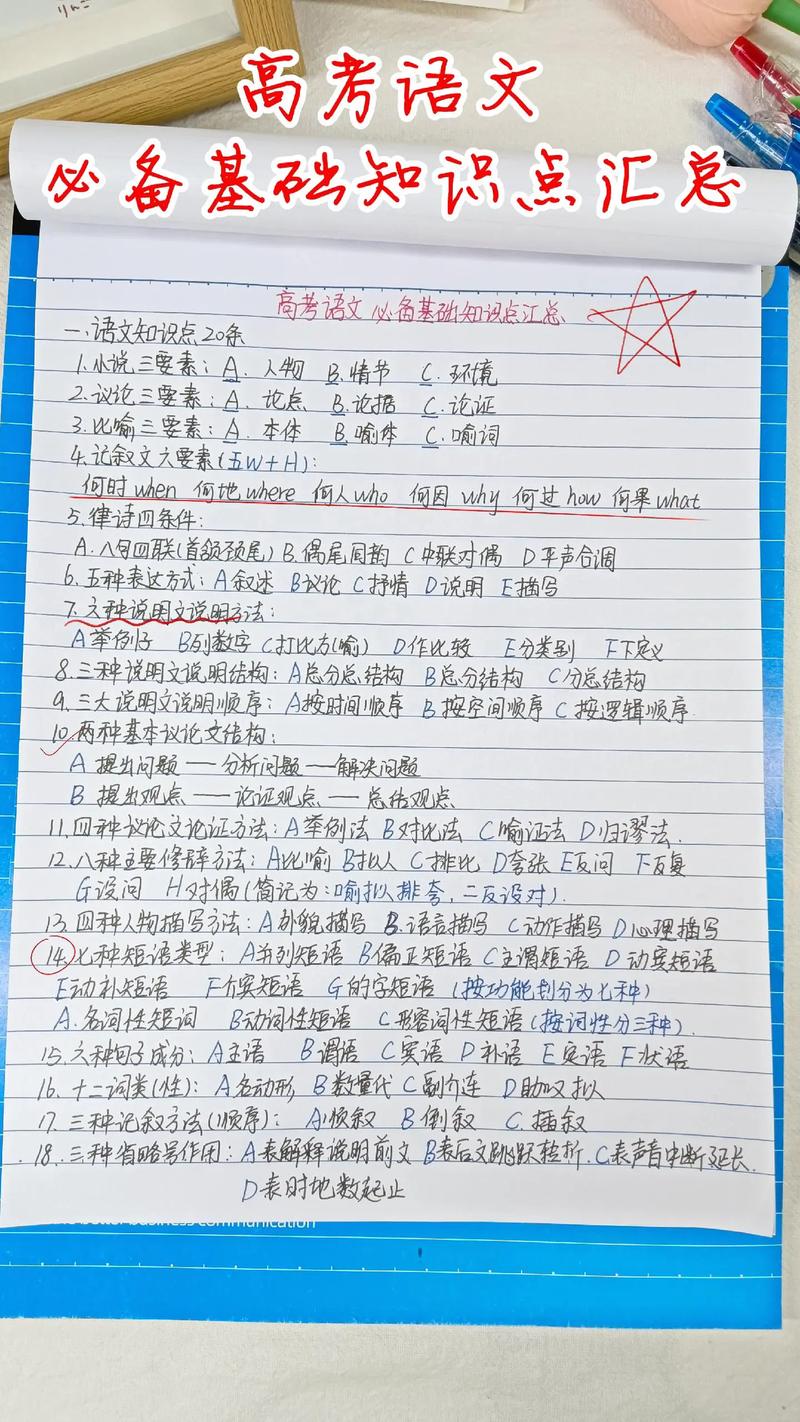 りんご
高考语文
必备基础知识点汇总
高考语文 必备基础知识点汇总
一.语文知识点20条
1.小说三要素：A.人物 B.情节 C.环境
2.议论三要素：A.论点 B.论据 C.论证
3.比喻三要素：A.本体 B.喻体 C.喻词
4.记叙文六要素(五W+H)：
何时when 何地where 何人who 何因why 何过how 何果what
5.律诗四条件：
A.八句四联(首颔颈尾) B.偶尾同韵 C中联对偶 D平声合调
6.五种表达方式：A叙述 B议论 C抒情 D说明 E描写
7.六种说明文说明方法：
A举例子 B列数字 C打比方(喻) D作比较 E分类别 F下定义
8.三种说明文说明结构：A总分总结构 B总分结构 C分总结构
9.三大说明文说明顺序：A按时间顺序 B按空间顺序 C按逻辑顺序
10.两种基本议论文结构：
A提出问题——分析问题——解决问题
B提出观点——论证观点——总结观点
11.四种议论文论证方法：A举例法 B对比法 C喻证法 D归谬法.
12.八种主要修辞方法：A比喻 B拟人 C排比 D夸张 E反问 F反复
G设问 H对偶(简记为：喻拟排夸，二反设对).
13.四种人物描写方法：A外貌描写 B.语言描写 C动作描写 D心理描写
14.七种短语类型：A并列短语 B偏正短语 C主谓短语 D动宾短语
E动补短语 F介宾短语 G的字短语 (按功能划分为七种)
A.名词性短词 B动词性短语 C形容词性短语(按词性分三种).
15.六种句子成分：A主语 B谓语 C宾语 D补语 E定语 F状语
16.十二词类(性)：A名动形 B数量代 C副介连 D助叹拟
17.三种记叙方法(顺序)：A顺叙 B倒叙 C.插叙
18.三种省略号作用：A表解释说明前文 B表后文跳跃转折.C表声音中断延长.
D表时地数起止
business communication